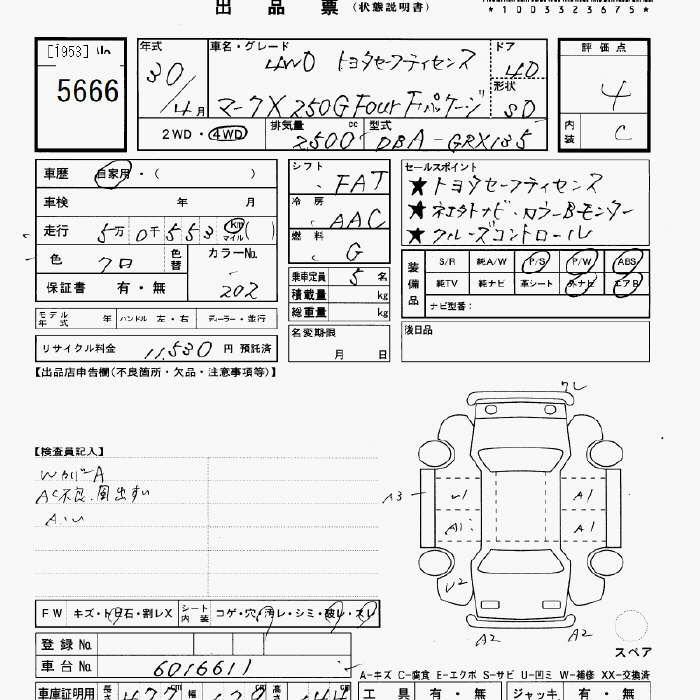 出品票 (状態説明書)
*1003323675*
[1953]
5666
年式 30/4月
車名・グレード 4WD トヨタセーフティセンス
マークX 250G Four Fパッケージ
ドア 4D
形状 SD
2WD・4WD
排気量 2500cc 型式 DBA-GRX135
評価点 4
内装 C
車歴 自家用・( )
車検 年 月
走行 5万 0千 5 5 3 km マイル ( )
色 クロ 色替 カラーNo. 202
保証書 有・無
モデル年式 年 ハンドル 左・右 ディーラー・並行
リサイクル料金 11,530 円 預託済
シフト FAT
冷房 AAC
燃料 G
乗車定員 5 名
積載量 kg
総重量 kg
名変期限 月 日
セールスポイント
★トヨタセーフティセンス
★ネエクトナビ、カラーBモニター
★クルーズコントロール
装備品 S/R 純A/W P/S P/W ABS
純TV 純ナビ 革シート 外ナビ エアB
ナビ型番:
後日品
【出品店申告欄(不良箇所・欠品・注意事項等)】
【検査員記入】
WカバーA
AC不良、風出すい
A.U
A3
U1
A1
A1
A1
U2
A2
A2
スペア
FW キズ・飛石・割レX シート内装 コゲ・穴・汚レ・シミ・破レ・スレ
登録No.
車台No. 6016611
A-キズ C-腐食 E-エクボ S-サビ U-凹ミ W-補修 XX-交換済
車庫証明用 長さ 幅 高さ
工具 有・無 ジャッキ 有・無